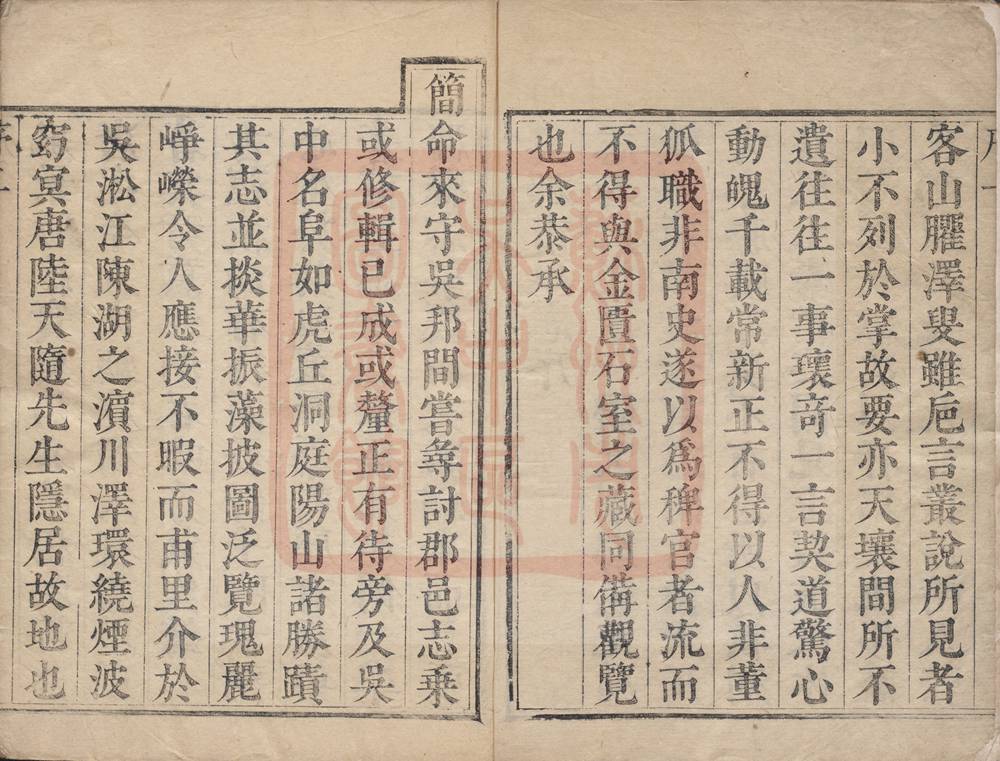 客山臞澤叟雖巵言叢說所見者
小不列於掌故要亦天壤間所不
遺往往一事瓌竒一言契道驚心
動魄千載常新正不得以人非董
狐職非南史遂以爲稗官者流而
不得與金匱石室之藏同備觀覽
也余恭承
簡命來守吳邦間嘗尋討郡邑志乗
或修輯已成或釐正有待旁及吳
中名阜如虎丘洞庭陽山諸勝蹟
其志並掞華振藻披圖泛覽瑰麗
崢嶸令人應接不暇而甫里介於
吳淞江陳湖之濵川澤環繞煙波
窈㝠唐陸天隨先生隱居故地也